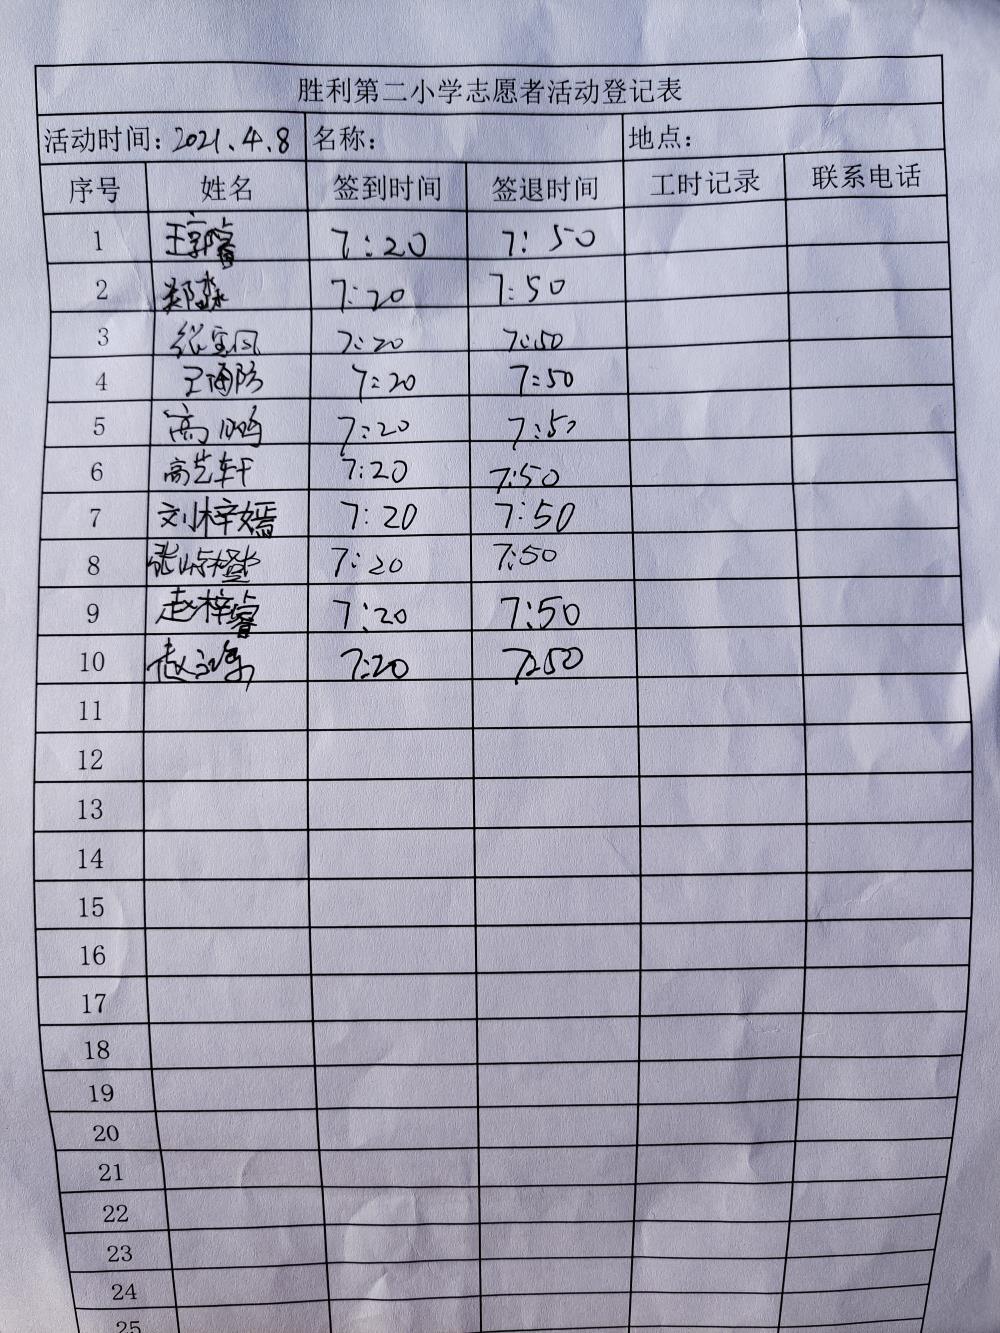 胜利第二小学志愿者活动登记表
活动时间：2021.4.8 名称： 地点：
序号 姓名 签到时间 签退时间 工时记录 联系电话
1 7:20 7:50
2 郑淼 7:20 7:50
3 张宝凤 7:20 7:50
4 7:20 7:50
5 高鹏 7:20 7:50
6 高艺轩 7:20 7:50
7 刘梓嫣 7:20 7:50
8 7:20 7:50
9 赵梓睿 7:20 7:50
10 7:20 7:50
11
12
13
14
15
16
17
18
19
20
21
22
23
24
25